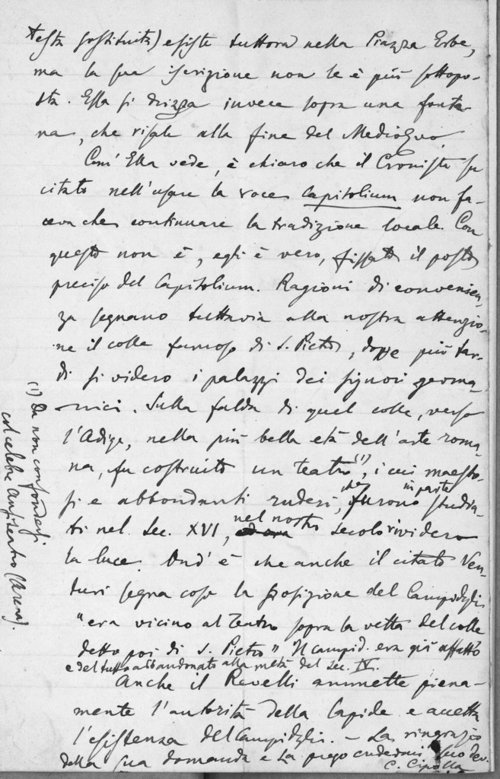 testa sostituita) esiste tuttora nella Piazza Erbe,
ma la sua iscrizione non le è più sottopo-
sta. Essa si drizza invece sopra una fonta-
na, che risale alla fine del Medioevo.
Com' Ella vede, è chiaro che il Cronista su
citato nell'usare la voce Capitolium non fa-
ceva che continuare la tradizione locale. Con
questo non è, egli è vero, fissato il posto
preciso del Capitolium. Ragioni di convenien-
za segnano tuttavia alla nostra attenzio-
ne il colle famoso di S. Pietro, dove più tar-
di si videro i palazzi dei signori germa-
nici. Sulla falda di quel colle, verso
l'Adige, nella più bella età dell'arte roma-
na, fu costruito un teatro (1), i cui maesto-
si e abbondanti ruderi, che furono in parte studia-
ti nel Sec. XVI, nel nostro secolo rividero
la luce. Ond' è che anche il citato Ven-
turi segna così la posizione del Campidoglio
"era vicino al Teatro sopra la vetta del colle
detto poi di S. Pietro" Il Campid. era già affatto
e del tutto abbandonato alla metà del Sec. IV.
Anche il Ravelli ammette piena-
mente l'autorità della lapide e accetta
l'esistenza del Campidoglio. – La ringrazio
della sua domanda e La prego credermi Suo dev.
C. Cipolla
(1) Da non confondersi
col celebre Anfiteatro (Arena).